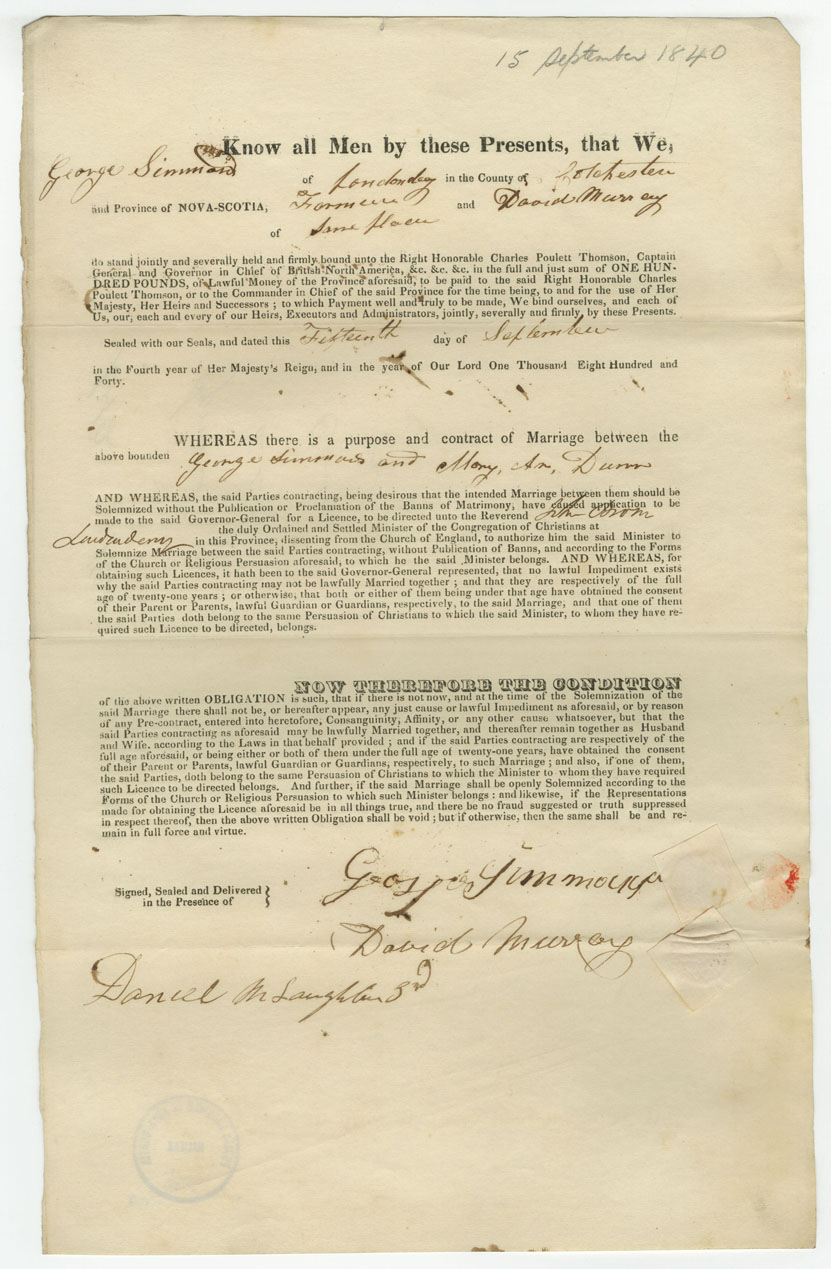 15 September 1840
Know all Men by these Presents, that We,
George Simmons of Londondery in the County of Colchester
and Province of NOVA-SCOTIA, Farmer and David Murray
of Same place
do stand jointly and severally held and firmly bound unto the Right Honorable Charles Poulett Thomson, Captain
General and Governor in Chief of British North America, &c. &c. &c. in the full and just sum of ONE HUN-
DRED POUNDS, of Lawful Money of the Province aforesaid, to be paid to the said Right Honorable Charles
Poulett Thomson, or to the Commander in Chief of the said Province for the time being, to and for the use of Her
Majesty, Her Heirs and Successors ; to which Payment well and truly to be made, We bind ourselves, and each of
Us, our, each and every of our Heirs, Executors and Administrators, jointly, severally and firmly, by these Presents.
Sealed with our Seals, and dated this Fifteenth day of September
in the Fourth year of Her Majesty's Reign, and in the year of Our Lord One Thousand Eight Hundred and
Forty.
WHEREAS there is a purpose and contract of Marriage between the
above bounden George Simmons and Mary, An, Dunn
AND WHEREAS, the said Parties contracting, being desirous that the intended Marriage between them should be
Solemnized without the Publication or Proclamation of the Banns of Matrimony, have caused application to be
made to the said Governor-General for a Licence, to be directed unto the Reverend John Brown
the duly Ordained and Settled Minister of the Congregation of Christians at
Londonderry in this Province, dissenting from the Church of England, to authorize him the said Minister to
Solemnize Marriage between the said Parties contracting, without Publication of Banns, and according to the Forms
of the Church or Religious Persuasion aforesaid, to which he the said Minister belongs. AND WHEREAS, for
obtaining such Licences, it hath been to the said Governor-General represented, that no lawful Impediment exists
why the said Parties contracting may not be lawfully Married together ; and that they are respectively of the full
age of twenty-one years ; or otherwise, that both or either of them being under that age have obtained the consent
of their Parent or Parents, lawful Guardian or Guardians, respectively, to the said Marriage, and that one of them
the said Parties doth belong to the same Persuasion of Christians to which the said Minister, to whom they have re-
quired such Licence to be directed, belongs.
NOW THEREFORE THE CONDITION
of the above written OBLIGATION is such, that if there is not now, and at the time of the Solemnization of the
said Marriage there shall not be, or hereafter appear, any just cause or lawful Impediment as aforesaid, or by reason
of any Pre-contract, entered into heretofore, Consanguinity, Affinity, or any other cause whatsoever, but that the
said Parties contracting as aforesaid may be lawfully Married together, and thereafter remain together as Husband
and Wife, according to the Laws in that behalf provided ; and if the said Parties contracting are respectively of the
full age aforesaid, or being either or both of them under the full age of twenty-one years, have obtained the consent
of their Parent or Parents, lawful Guardian or Guardians, respectively, to such Marriage ; and also, if one of them,
the said Parties, doth belong to the same Persuasion of Christians to which the Minister to whom they have required
such Licence to be directed belongs. And further, if the said Marriage shall be openly Solemnized according to the
Forms of the Church or Religious Persuasion to which such Minister belongs : and likewise, if the Representations
made for obtaining the Licence aforesaid be in all things true, and there be no fraud suggested or truth suppressed
in respect thereof, then the above written Obligation shall be void ; but if otherwise, then the same shall be and re-
main in full force and virtue.
Signed, Sealed and Delivered
in the Presence of
George Simmons
David Murray
Daniel McLaughlin 3rd